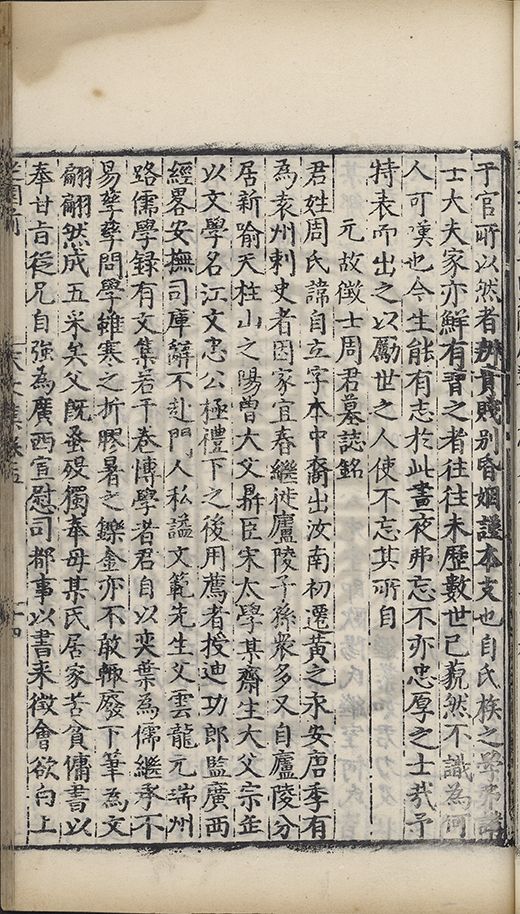 于官所以然者辨貴賤别昏姻謹本支也自氏族之學弗講
士大夫家亦鮮有習之者往往未歷數世已藐然不識為何
人可嘆也今生能有志於此晝夜弗忘不亦忠厚之士㢤予
特表而出之以勵世之人使不忘其所自
元故徵士周君墓誌銘
君姓周氏諱自立字本中裔出汝南初遷黄之永安唐季有
為袁州刺史者因家宜春繼徙廬陵子孫衆多又自廬陵分
居新喻天柱山之陽曽大父鼒臣宋太學某齋生大父宗並
以文學名江文忠公極禮下之後用薦者授迪功郎監廣西
經畧安撫司庫辭不赴門人私諡文範先生父雲龍元瑞州
路儒學録有文集若干卷博學者君自以奕葉為儒繼承不
易孳孳問學雖寒之折膠暑之鑠金亦不敢輙廢下筆為文
翩翩然成五采矣父旣蚤殁獨奉母某氏居家苦貧傭書以
奉甘旨從兄自強為廣西宣慰司都事以書来徵會欲向上